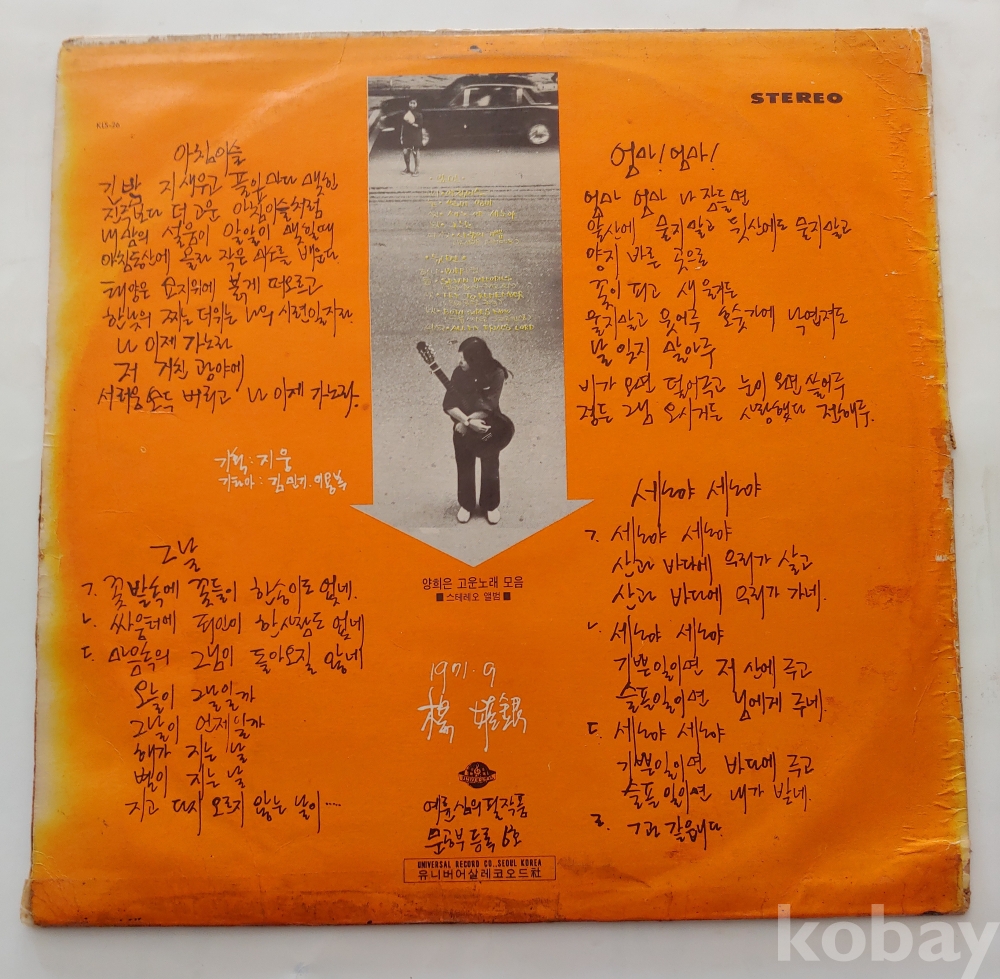 STEREO
KLS-26
아침이슬
긴밤 지새우고 풀잎마다 맺힌
진주보다 더 고운 아침이슬처럼
내 맘의 설움이 알알이 맺힐때
아침동산에 올라 작은 미소를 배운다
태양은 묘지위에 붉게 떠오르고
한낮의 찌는 더위는 나의 시련일지라
나 이제 가노라
저 거친 광야에
서러움 모두 버리고 나 이제 가노라.
기획 : 지웅
기타아 : 김민기. 이용복
그날
ㄱ. 꽃밭속에 꽃들이 한송이도 없네.
ㄴ. 싸움터에 죄인이 한사람도 없네
ㄷ. 마음속의 그님이 돌아오질 않네
오늘이 그날일까
그날이 언제일까
해가 지는 날
별이 지는 날
지고 다시 오르지 않는 날이.....
양희은 고운노래 모음
■ 스테레오 앨범 ■
1971. 9
楊 姬銀
UNIVERSAL
예륜심의필작품
문공부 등록 6호
UNIVERSAL RECORD CO., SEOUL KOREA
유니버어살레코오드社
엄마! 엄마!
엄마 엄마 나 잠들면
앞산에 묻지말고 뒷산에도 묻지말고
양지 바른 곳으로
꽃이 피고 새 울거든
울지말고 웃어주 호숫가에 낙엽져도
날 잊지 말아주
비가 오면 덮어주고 눈이 오면 쓸어주
정든 그님 오시거든 사랑했다 전해주.
세노야 세노야
ㄱ. 세노야 세노야
산과 바다에 우리가 살고
산과 바다에 우리가 가네.
ㄴ. 세노야 세노야
기쁜일이면 저 산에 주고
슬픈일이면 님에게 주네.
ㄷ. 세노야 세노야
기쁜일이면 바다에 주고
슬픈일이면 내가 받네.
ㄹ. ㄱ과 같읍니다.
kobay